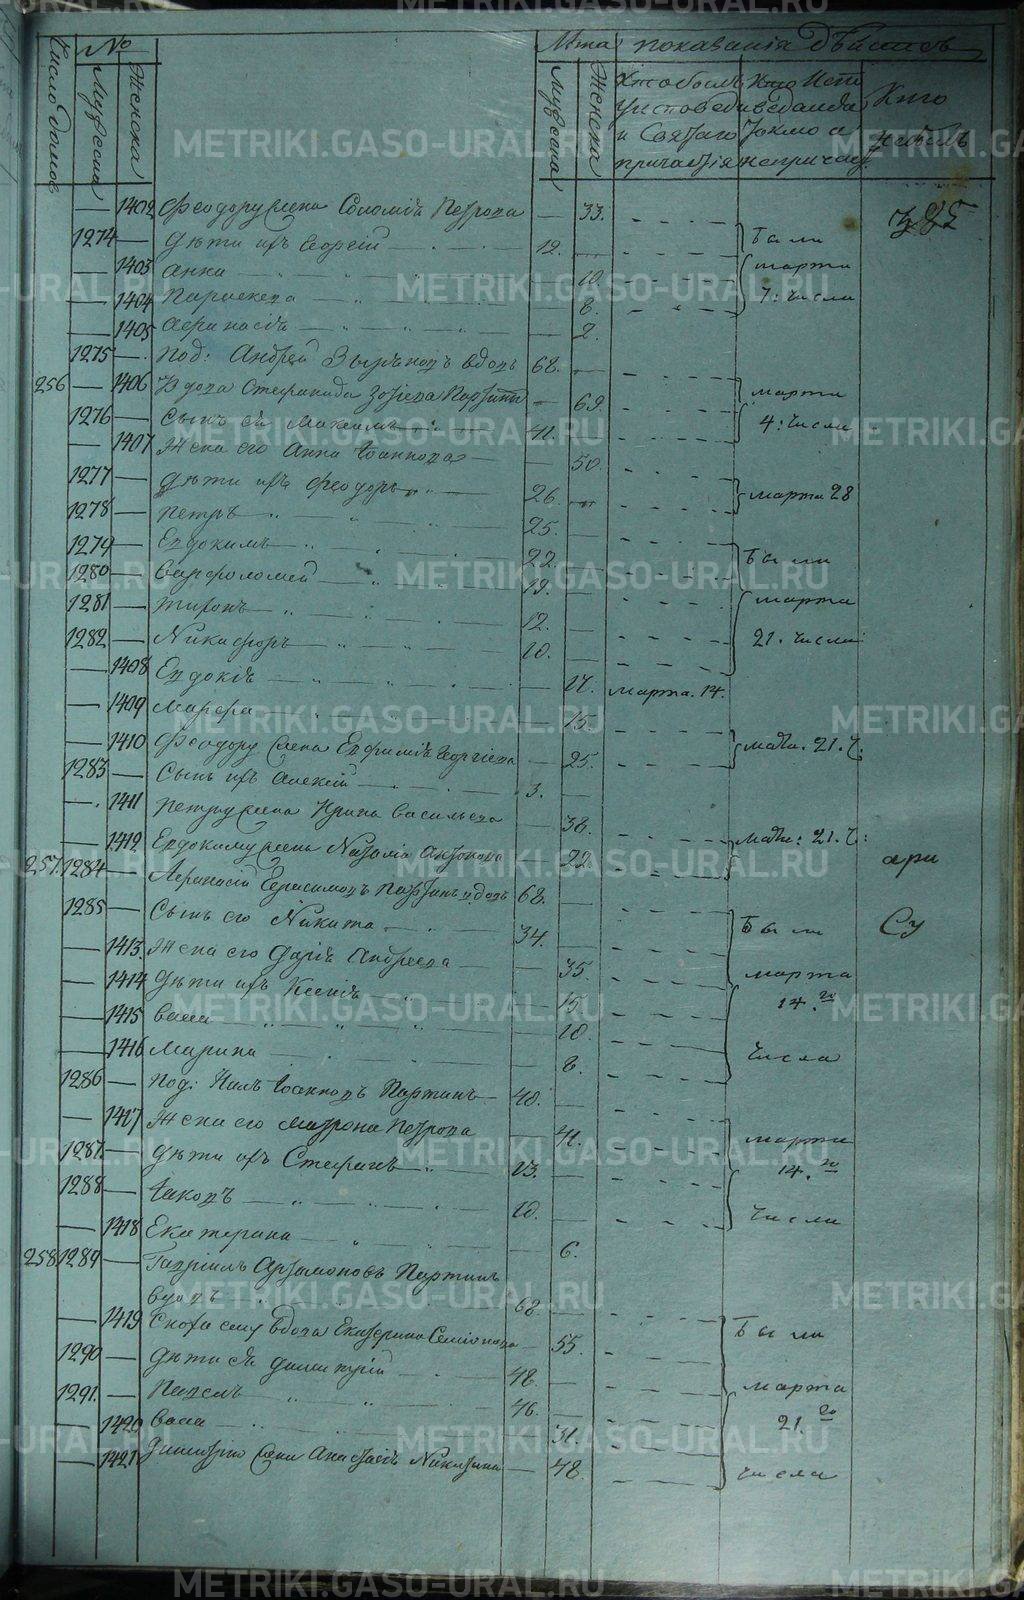 № Лѣта показанія дѣйств
Число домов Мужеска Женска Мужеска Женска Кто былъ у исповеди и Святаго причастія Кто Исповедался Токмо а непричас. Кто небылъ
— 1402 Феодору жена Соломія Петрова — 33.
1274 — Дѣти ихъ Георгій — 12. Были
— 1403 Анна — 10. марта
— 1404 Параскева — 8. 7: числа
— 1405 Афанасія — 2.
1275 — Под: Андрей Зырянов вдовъ 68.
256 — 1406 Вдова Стефанида Паршина — 69. марта
1276 — Сынъ ея Максимъ 41. 4: числа
— 1407 Жена его Анна Іоаннова — 50.
1277 — Дѣти ихъ Феодоръ 26. марта 28
1278 — Петръ 25.
1279 — Евдокимъ 22. Были
1280 — Варфоломей 19.
1281 — 12. марта
1282 — Никифоръ 10. 21. числа
— 1408 Евдокія — 17. марта. 14.
— 1409 Марфа — 15.
— 1410 Феодору жена Евфимія Георгіева — 25. 21. ч:
1283 — Сынъ ихъ Алексій 3. —
— 1411 Петру жена Ирина Васильева — 38.
— 1412 Евдокиму жена Наталія Антонова — 22. 21. ч:
257. 1284 — Афанасій Герасимовъ Паршинъ вдовъ 68. —
1285 — Сынъ его Никита 34. Были
— 1413. Жена его Дарія Андреева — 35. марта
— 1414 Дѣти ихъ Ксенія 15. 14. го
— 1415 Васса 10.
— 1416 Марина 8. числа
1286 — Под: Нилъ Іоанновъ Паршинъ 40.
— 1417 Жена его Матрона Петрова — 41. марта
1287. — Дѣти ихъ Стефанъ 13. 14. го
1288 — Іаковъ 10. —
— 1418 Екатерина — 6. числа
258 1289 — Гавріилъ Артамоновъ Паршинъ
вдовъ 68.
— 1419 Сноха ему вдова Екатерина Семіонова — 55. Были
1290 — Дѣти ея Димитрій 48.
1291. — Павелъ 46. марта
— 1420 Васса 31. 21. го
— 1421 Димитрію жена Анастасія Никитина — 48. числа